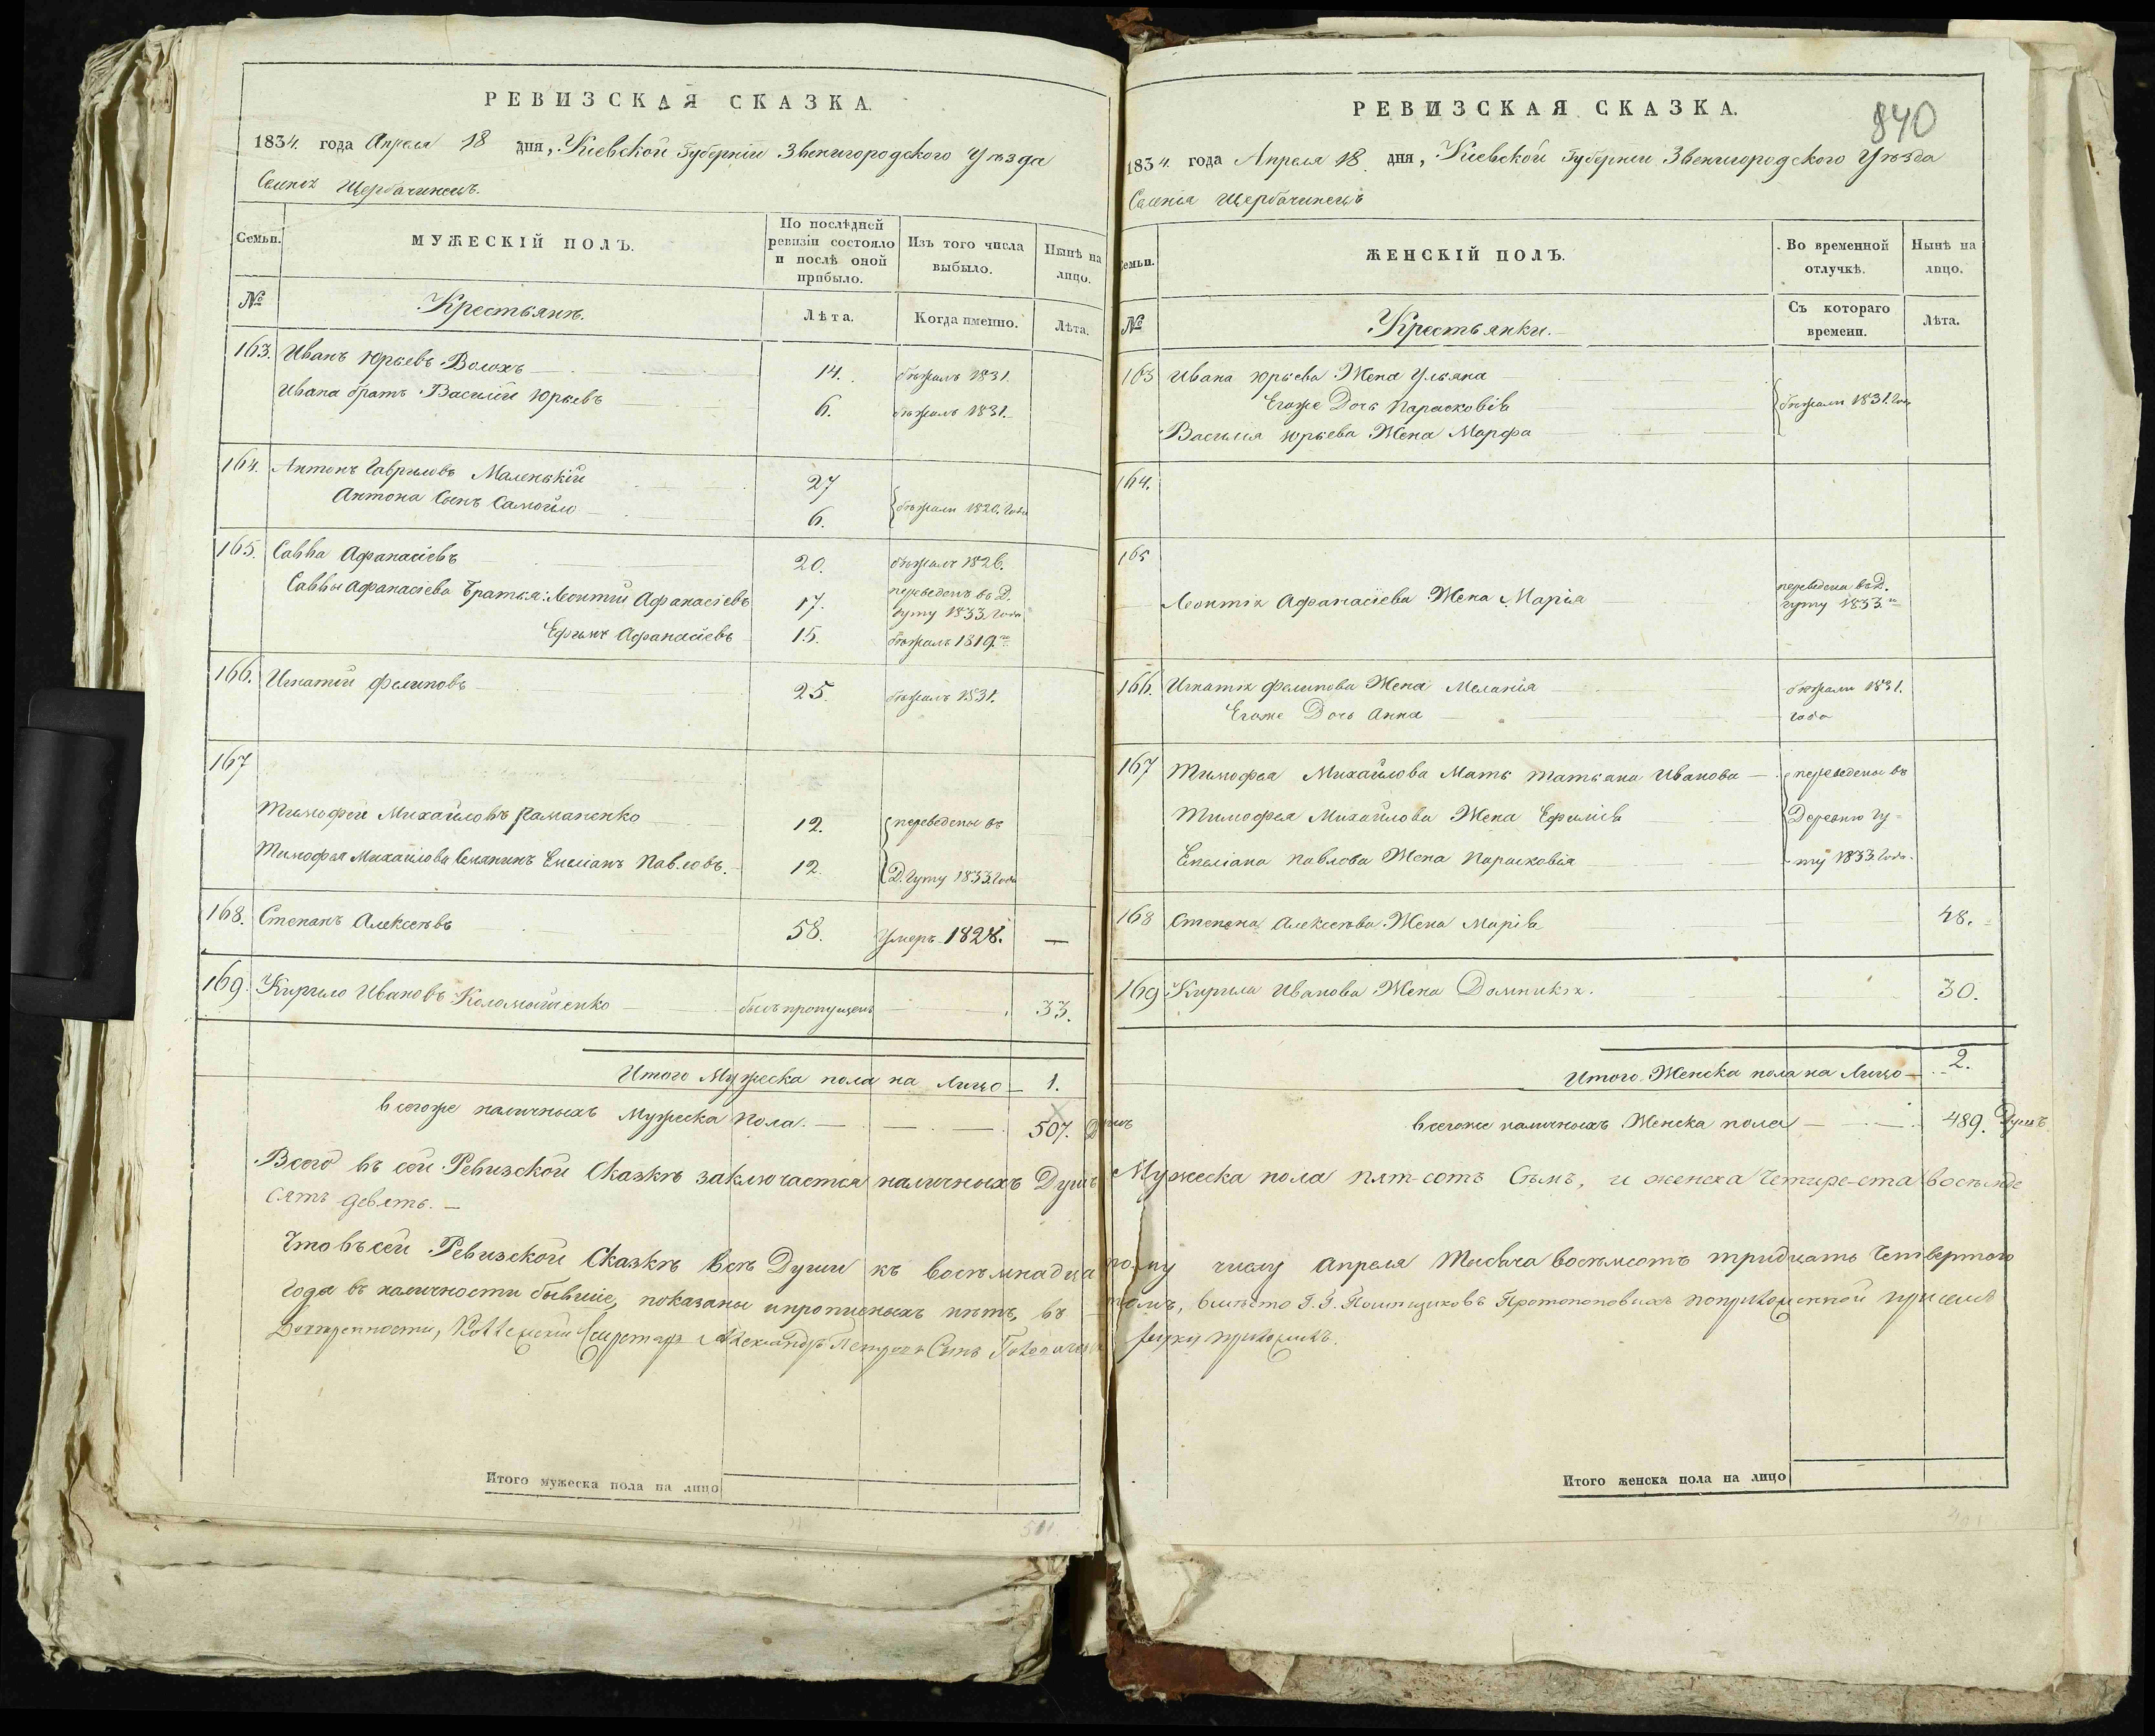 РЕВИЗСКАЯ СКАЗКА.
1834. года Апреля 18 дня, Киевской Губернии Звенигородского Уѣзда
Селенія Щербачинецъ.
Семьи.
МУЖЕСКІЙ ПОЛЪ.
По послѣдней ревизіи состояло и послѣ оной прибыло.
Изъ того числа выбыло.
Нынѣ на лицо.
№
Крестьянъ.
Лѣта.
Когда именно.
Лѣта.
163. Иванъ Юрьевъ Волохъ 14. бѣжалъ 1831.
Ивана братъ Василій Юрьевъ 6. бѣжалъ 1831.
164. Антонъ Гавриловъ Маленькій 27
Антона Сынъ Самойло 6. бѣжали 1820. Года
165. Савва Афанасіевъ 20. бѣжалъ 1826.
Саввы Афанасіева Братья: Леонтій Афанасіевъ 17. переведенъ въ Д. Гуту 1833. Года
Ефимъ Афанасіевъ 15. бѣжалъ 1819. го
166. Игнатій Филиповъ 25. бѣжалъ 1831.
167
Тимофей Михайловъ Романенко 12. переведены въ
Тимофея Михайлова Емеліанъ Павловъ. 12. Д. Гуту 1833. Года
168. Степанъ Алексѣевъ 58. Умеръ 1828. —
169. Кирило Ивановъ Коломойченко былъ пропущенъ 33.
Итого Мужеска пола на Лицо — 1.
всегоже наличныхъ Мужеска Пола. — 507. Душъ
РЕВИЗСКАЯ СКАЗКА.
840
1834. года Апреля 18. дня, Киевской Губернии Звенигородского Уѣзда
Селенія Щербачинецъ
Семьи.
ЖЕНСКІЙ ПОЛЪ.
Во временной отлучкѣ.
Нынѣ на лицо.
№
Крестьянки.
Съ котораго времени.
Лѣта.
163 Ивана Юрьева Жена Ульяна
Егоже Дочь Парасковія бѣжали 1831. Года
Василія Юрьева Жена Марфа
164.
165
Леонтія Афанасіева Жена Марія переведена въ Д. Гуту 1833. го
166. Игнатія Филипова Жена Меланія бѣжали 1831.
Егоже Дочь Анна Года
167 Тимофея Михайлова Мать Татьяна Иванова переведены въ
Тимофея Михайлова Жена Ефимія Деревню Гу-
Емеліана Павлова Жена Парасковія ту 1833. Года.
168 Степана Алексѣева Жена Марія 48.
169 Кирила Иванова Жена Домникія. 30.
Итого Женска пола на Лицо — 2.
всегоже наличныхъ Женска пола — 489. Душъ
Всего въ сей Ревизской Сказкѣ заключается наличныхъ Душъ Мужеска пола пят-сотъ Семъ, и женска Четире-ста восемде
сятъ девять. —
Что въ сей Ревизской Сказкѣ всѣ Души къ восемнадцатому числу Апреля Тысяча восемсотъ тридцать Четвертого
Года въ наличности бывшіе, показаны и пропиcныхъ нѣтъ, въ томъ, вмѣсто Г. Г. Помѣщиковъ Протопоповыхъ
Секретарь Александръ Петровъ Сынъ руку приложилъ.
Итого мужеска пола на лицо
Итого женска пола на лицо